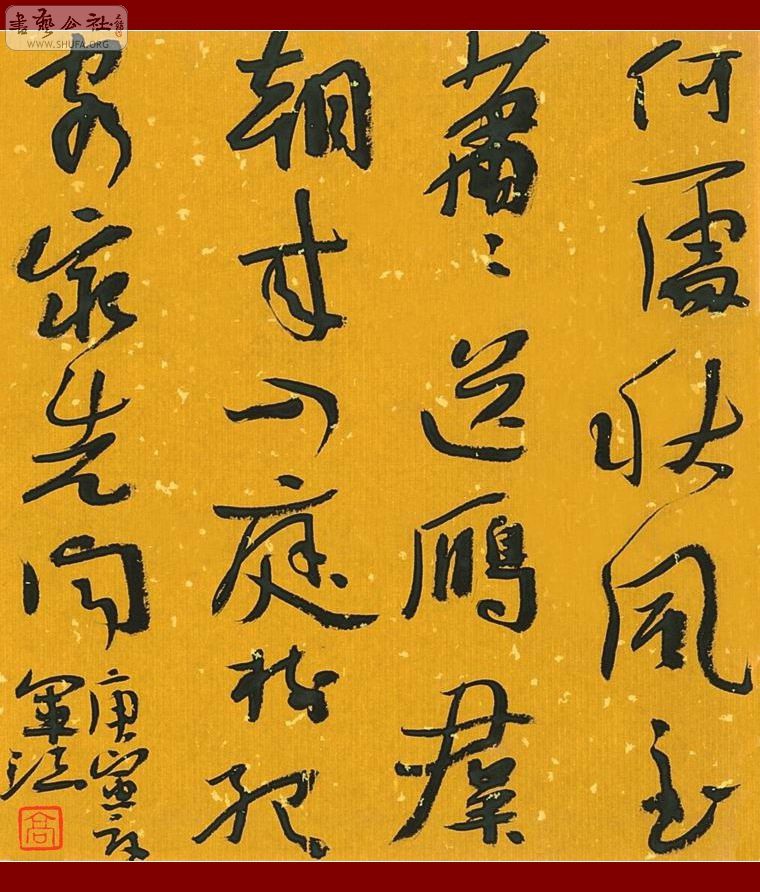 書藝公社
WWW.SHUFA.ORG
何處秋風至
蕭〻送鴈羣
朝来入庭樹孤
客最先聞
庚寅